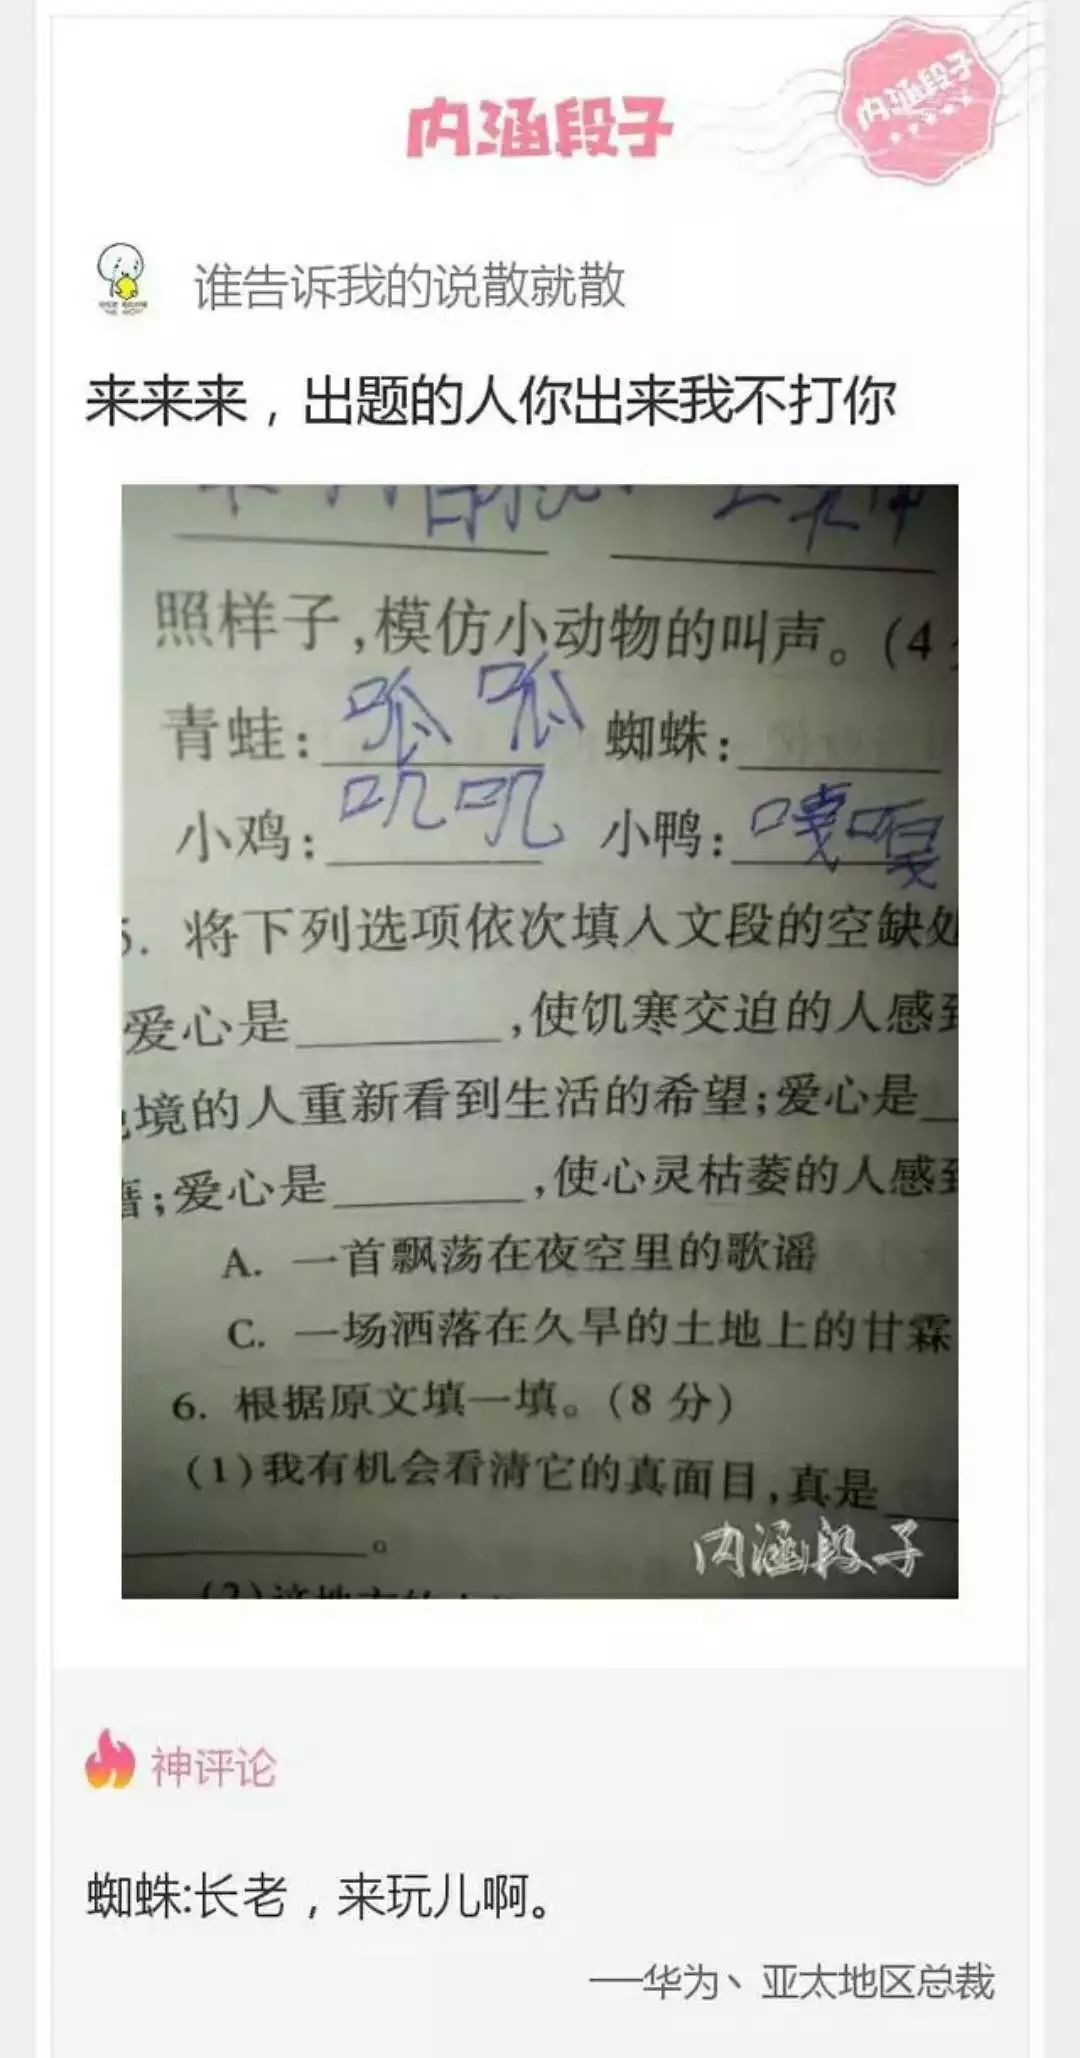 内涵段子
内涵段子
谁告诉我的说散就散
来来来，出题的人你出来我不打你
照样子,模仿小动物的叫声。(4
青蛙: 呱 呱 蜘蛛:
小鸡: 叽叽 小鸭: 嘎嘎
5. 将下列选项依次填入文段的空缺处
爱心是 ,使饥寒交迫的人感到
境的人重新看到生活的希望;爱心是
藉;爱心是 ,使心灵枯萎的人感到
A. 一首飘荡在夜空里的歌谣
C. 一场洒落在久旱的土地上的甘霖
6. 根据原文填一填。(8 分)
(1)我有机会看清它的真面目,真是
。
内涵段子
神评论
蜘蛛:长老，来玩儿啊。
——华为、亚太地区总裁